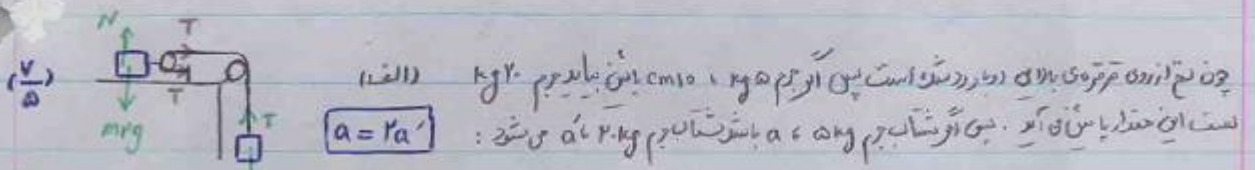 (۷/۵)
N
T
T
T
m₂g
(الف)
چون نخ از روی قرقره‌ی بالای دوبار رد شده است پس اگر جرم ۵ kg ، ۱۰ cm پایین بیاید جرم ۲۰ kg
این مقدار پایین می‌آید . پس اگر شتاب جرم ۵ kg ، a باشد شتاب جرم ۲۰ kg ، a' می‌شود :
a = ۲a'